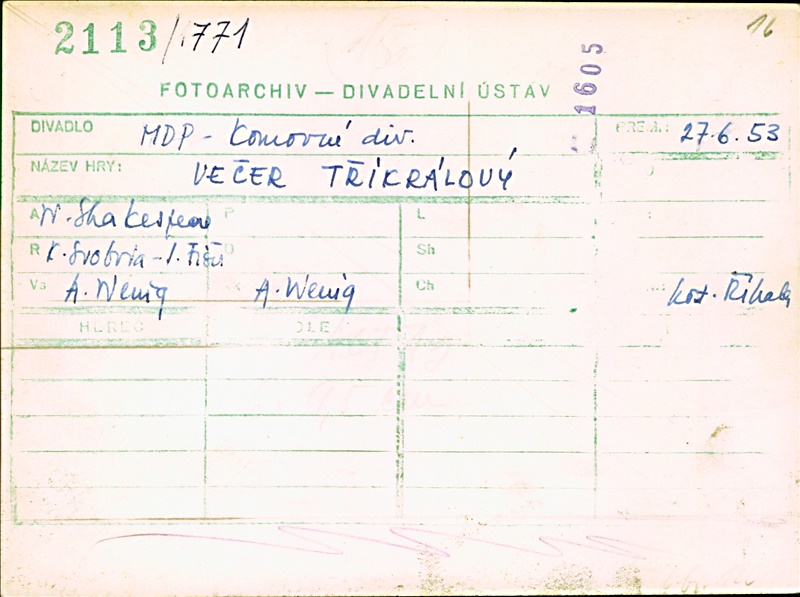 2113/1771
16
FOTOARCHIV — DIVADELNÍ ÚSTAV
1605
DIVADLO MDP - Komorné div. PREM.: 27.6.53
NÁZEV HRY: VEČER TŘÍKRÁLOVÝ
A W. Shakespeare P L
R K. Svoboda - J. O Sh
Vs A. Wenig A. Wenig Ch fot. Říhak
HEREC OLE